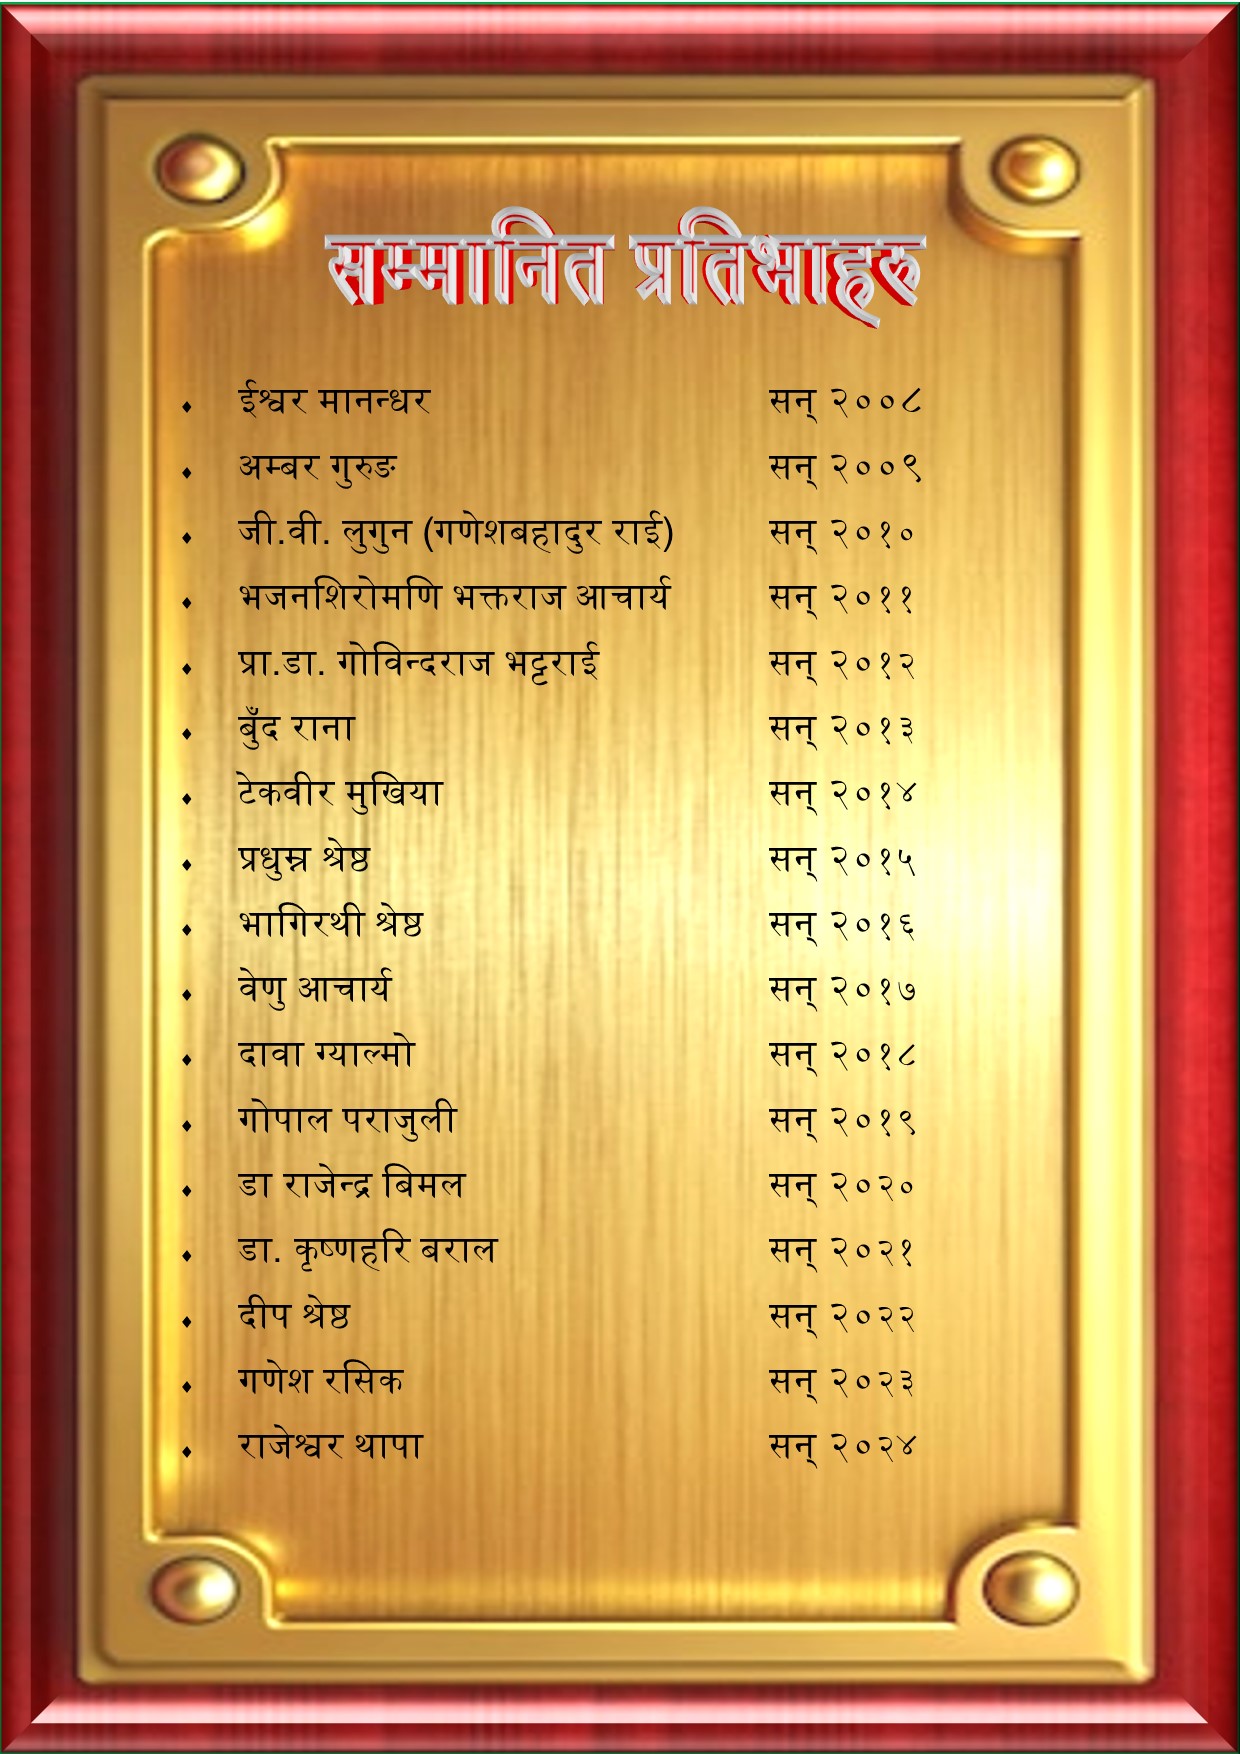 सम्मानित प्रतिभाहरु
⬧ ईश्वर मानन्धर सन् २००८
⬧ अम्बर गुरुङ सन् २००९
⬧ जी.वी. लुगुन (गणेशबहादुर राई) सन् २०१०
⬧ भजनशिरोमणि भक्तराज आचार्य सन् २०११
⬧ प्रा.डा. गोविन्दराज भट्टराई सन् २०१२
⬧ बुँद राना सन् २०१३
⬧ टेकवीर मुखिया सन् २०१४
⬧ प्रधुम्न श्रेष्ठ सन् २०१५
⬧ भागिरथी श्रेष्ठ सन् २०१६
⬧ वेणु आचार्य सन् २०१७
⬧ दावा ग्याल्मो सन् २०१८
⬧ गोपाल पराजुली सन् २०१९
⬧ डा राजेन्द्र बिमल सन् २०२०
⬧ डा. कृष्णहरि बराल सन् २०२१
⬧ दीप श्रेष्ठ सन् २०२२
⬧ गणेश रसिक सन् २०२३
⬧ राजेश्वर थापा सन् २०२४